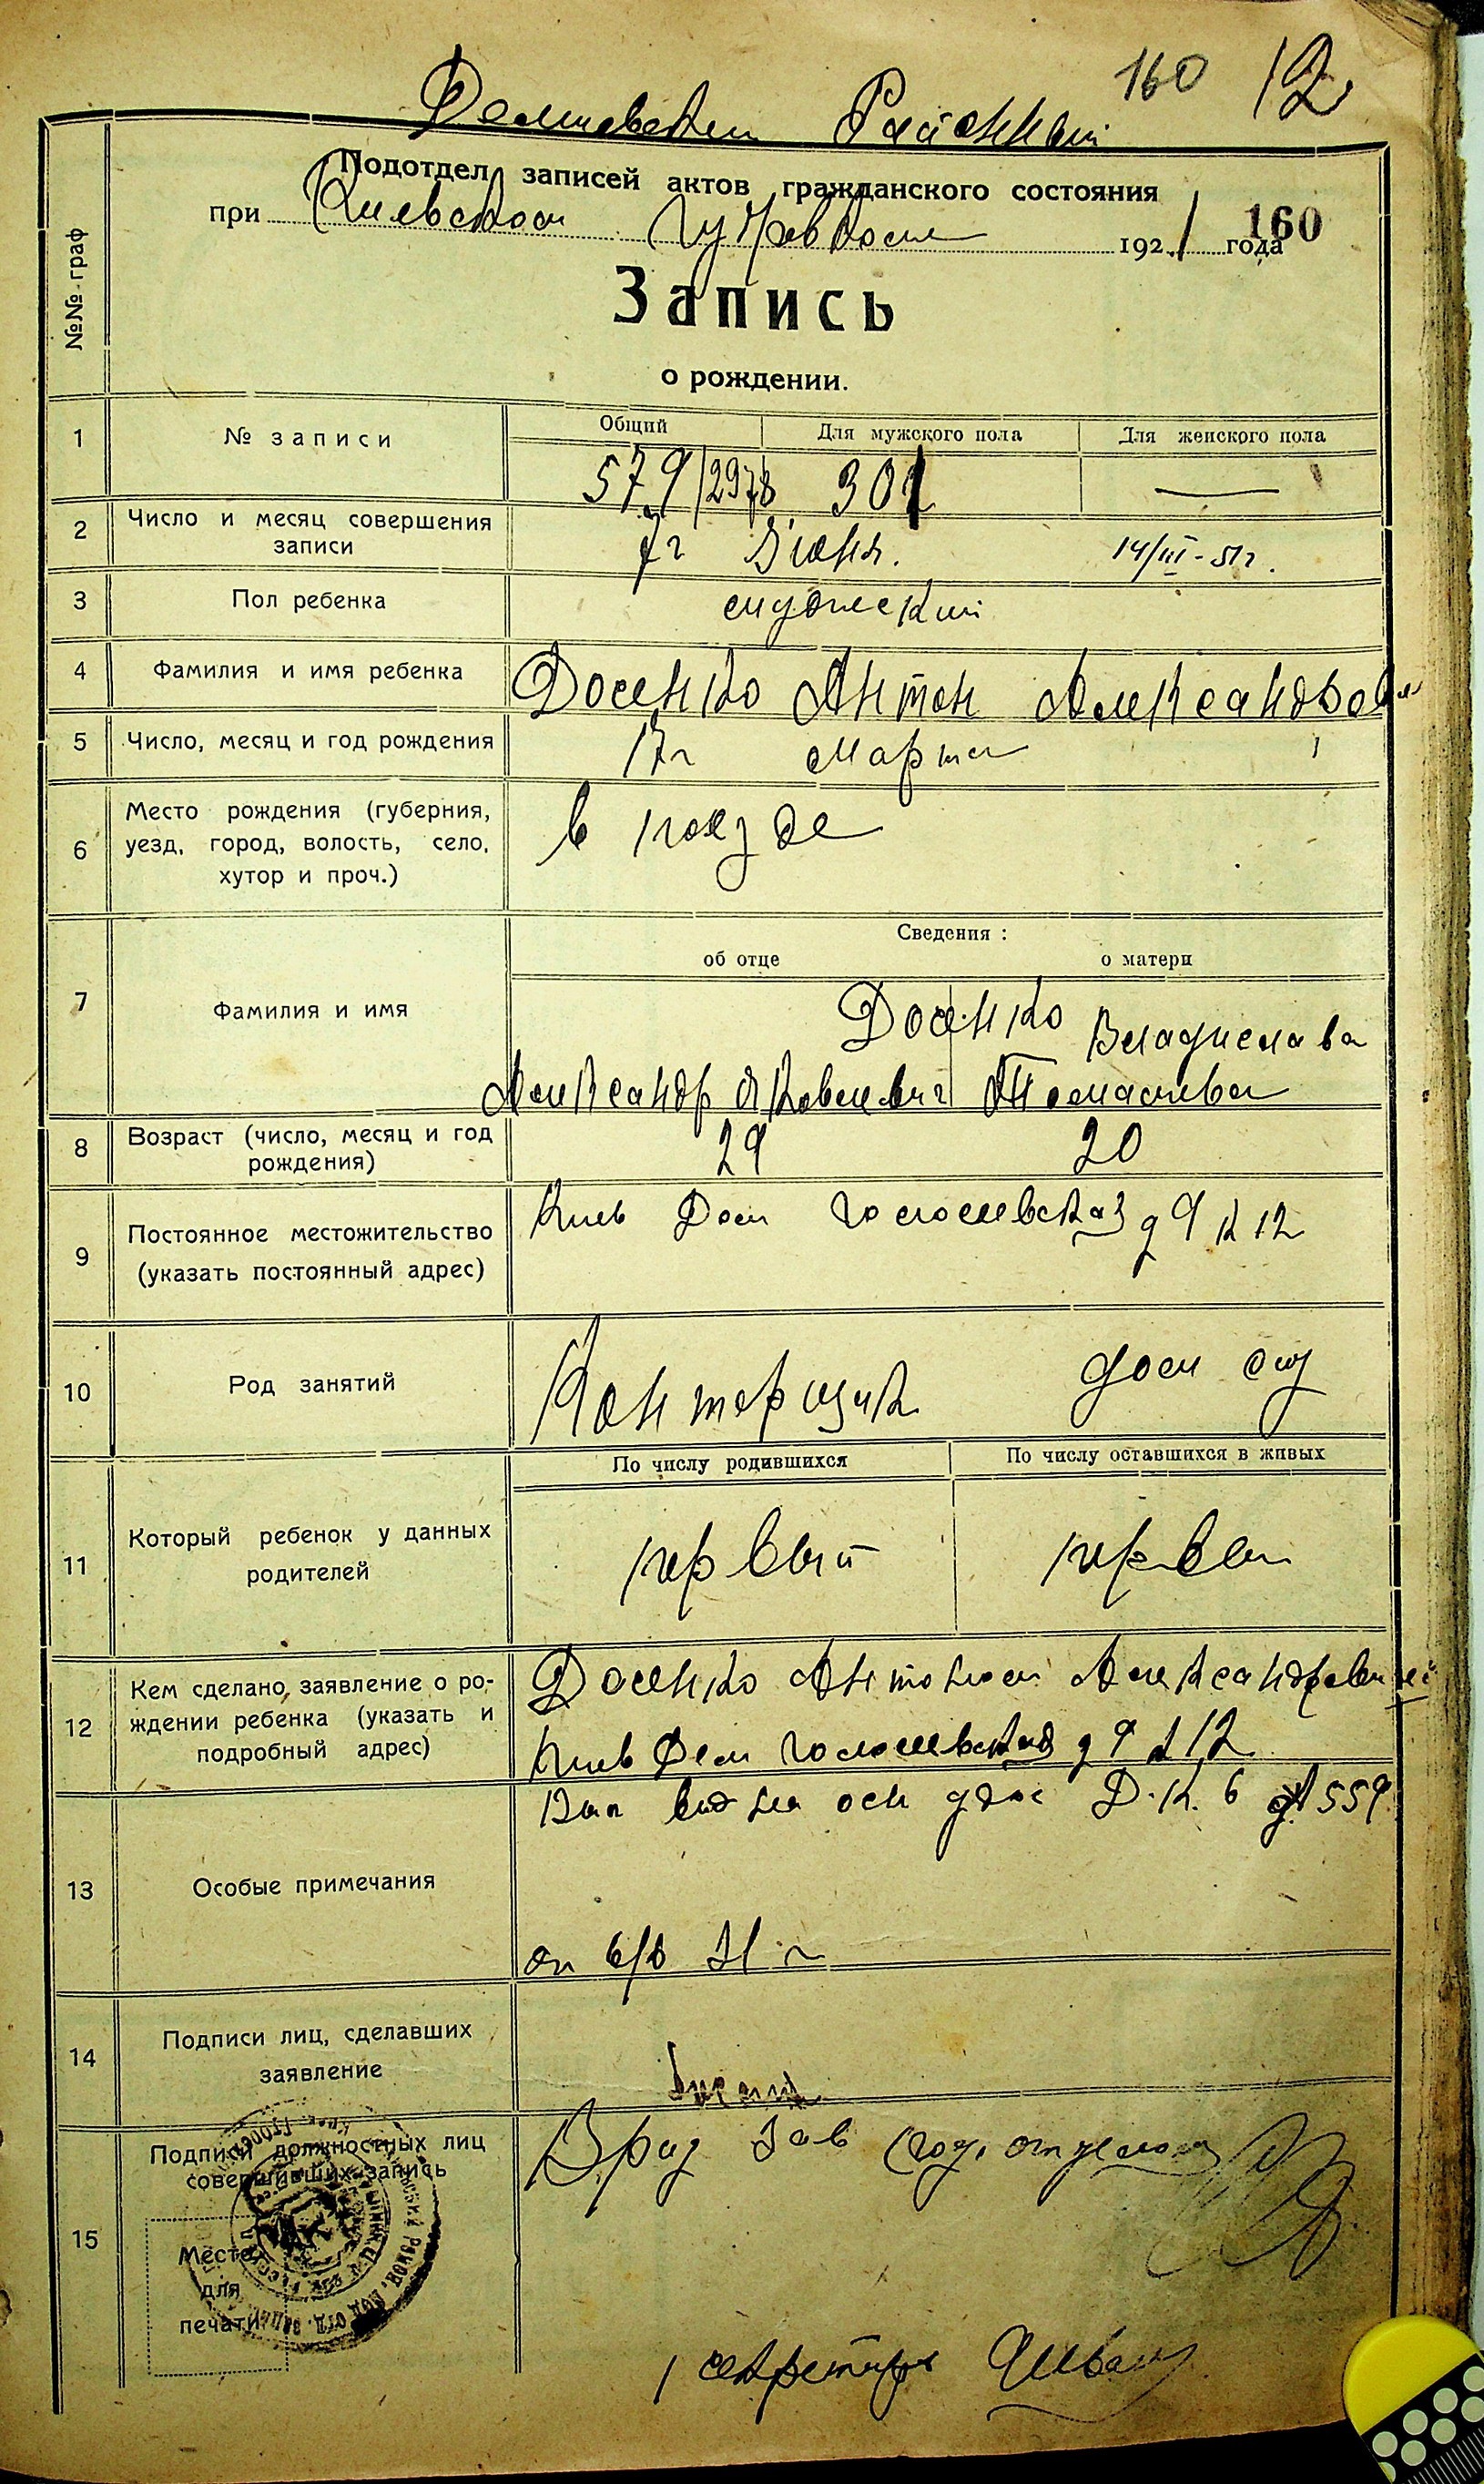 160 12
Районный
Подотдел записей актов гражданского состояния
при Киевском Губревкоме 1921 года
160
№№ граф
Запись
о рождении.
1 № записи Общий Для мужского пола Для женского пола
579/2978 301 —
2 Число и месяц совершения записи
7г Июня. 14/III-51г.
3 Пол ребенка мужеский
4 Фамилия и имя ребенка Досенко Антон Александров
5 Число, месяц и год рождения 17г Марта
6 Место рождения (губерния,
уезд, город, волость, село,
хутор и проч.)
в поезде
Сведения :
об отце о матери
7 Фамилия и имя
Досенко Владислава
Александр Яковлевич
8 Возраст (число, месяц и год
рождения)
29 20
9 Постоянное местожительство
(указать постоянный адрес)
Киев Дем Голосеевская д 9 к 12
10 Род занятий
Конторщик дом
По числу родившихся По числу оставшихся в живых
11 Который ребенок у данных
родителей
первый первый
12 Кем сделано заявление о ро-
ждении ребенка (указать и
подробный адрес)
Досенко Антоном Александровичем
Киев Дем Голосеевская д 9 к 12
13 Особые примечания
Зап на осн Д.К. 6 559
от 21 г
14 Подписи лиц, сделавших
заявление
15 Подписи должностных лиц
совершивших запись
Врид Зав подотделом
Место
для
печати
секретарь